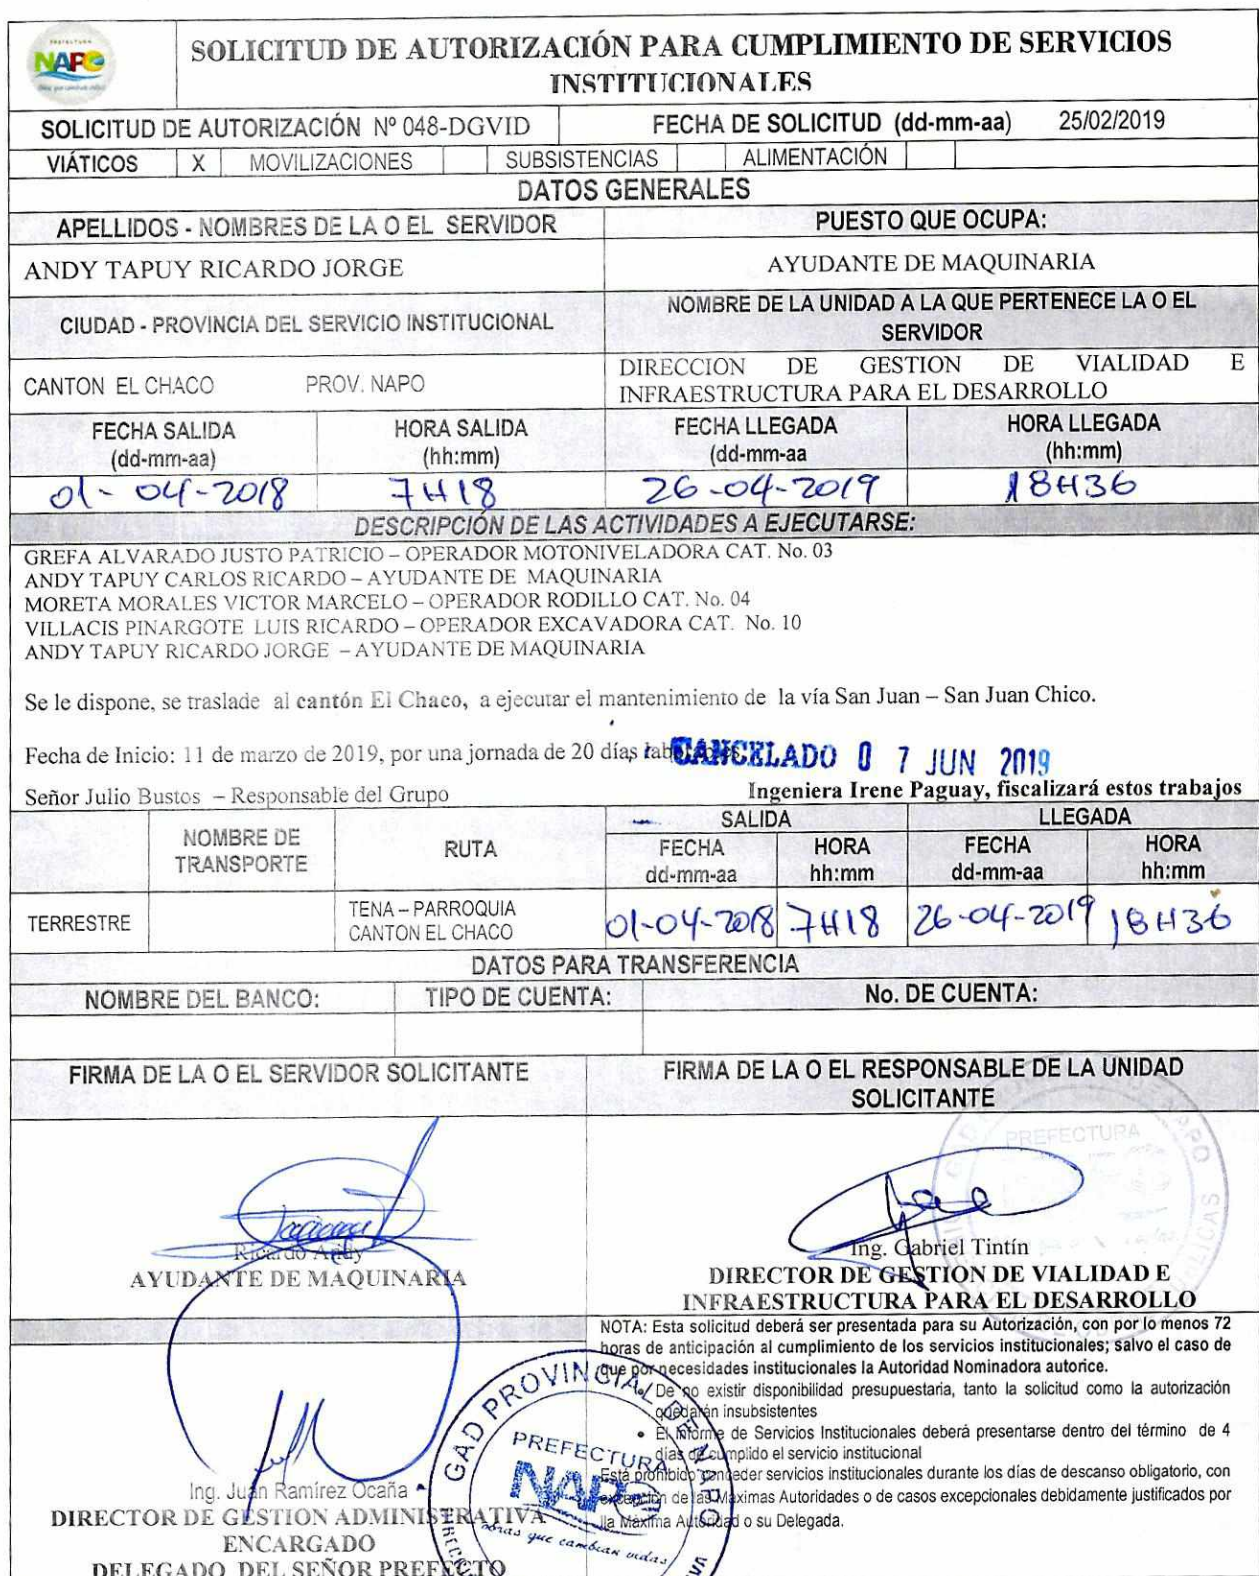 PREFECTURA
NAPO
SOLICITUD DE AUTORIZACIÓN PARA CUMPLIMIENTO DE SERVICIOS
INSTITUCIONALES
SOLICITUD DE AUTORIZACIÓN Nº 048-DGVID FECHA DE SOLICITUD (dd-mm-aa) 25/02/2019
VIÁTICOS X MOVILIZACIONES SUBSISTENCIAS ALIMENTACIÓN
DATOS GENERALES
APELLIDOS - NOMBRES DE LA O EL SERVIDOR PUESTO QUE OCUPA:
ANDY TAPUY RICARDO JORGE AYUDANTE DE MAQUINARIA
CIUDAD - PROVINCIA DEL SERVICIO INSTITUCIONAL NOMBRE DE LA UNIDAD A LA QUE PERTENECE LA O EL
SERVIDOR
CANTON EL CHACO PROV. NAPO DIRECCION DE GESTION DE VIALIDAD E
INFRAESTRUCTURA PARA EL DESARROLLO
FECHA SALIDA HORA SALIDA FECHA LLEGADA HORA LLEGADA
(dd-mm-aa) (hh:mm) (dd-mm-aa (hh:mm)
01-04-2018 7H18 26-04-2019 18H36
DESCRIPCIÓN DE LAS ACTIVIDADES A EJECUTARSE:
GREFA ALVARADO JUSTO PATRICIO – OPERADOR MOTONIVELADORA CAT. No. 03
ANDY TAPUY CARLOS RICARDO – AYUDANTE DE MAQUINARIA
MORETA MORALES VICTOR MARCELO – OPERADOR RODILLO CAT. No. 04
VILLACIS PINARGOTE LUIS RICARDO – OPERADOR EXCAVADORA CAT. No. 10
ANDY TAPUY RICARDO JORGE – AYUDANTE DE MAQUINARIA
Se le dispone, se traslade al cantón El Chaco, a ejecutar el mantenimiento de la vía San Juan – San Juan Chico.
Fecha de Inicio: 11 de marzo de 2019, por una jornada de 20 días CANCELADO 07 JUN 2019
Señor Julio Bustos – Responsable del Grupo Ingeniera Irene Paguay, fiscalizará estos trabajos
SALIDA LLEGADA
NOMBRE DE TRANSPORTE RUTA FECHA dd-mm-aa HORA hh:mm FECHA dd-mm-aa HORA hh:mm
TERRESTRE TENA – PARROQUIA
CANTON EL CHACO 01-04-2018 7H18 26-04-2019 18H36
DATOS PARA TRANSFERENCIA
NOMBRE DEL BANCO: TIPO DE CUENTA: No. DE CUENTA:
FIRMA DE LA O EL SERVIDOR SOLICITANTE FIRMA DE LA O EL RESPONSABLE DE LA UNIDAD
SOLICITANTE
PREFECTURA
Ricardo Andy
AYUDANTE DE MAQUINARIA
Ing. Gabriel Tintín
DIRECTOR DE GESTION DE VIALIDAD E
INFRAESTRUCTURA PARA EL DESARROLLO
NOTA: Esta solicitud deberá ser presentada para su Autorización, con por lo menos 72
horas de anticipación al cumplimiento de los servicios institucionales; salvo el caso de
que por necesidades institucionales la Autoridad Nominadora autorice.
De no existir disponibilidad presupuestaria, tanto la solicitud como la autorización
quedarán insubsistentes
• El Informe de Servicios Institucionales deberá presentarse dentro del término de 4
días de cumplido el servicio institucional
Está prohibido conceder servicios institucionales durante los días de descanso obligatorio, con
excepción de las Máximas Autoridades o de casos excepcionales debidamente justificados por
lla Máxima Autoridad o su Delegada.
Ing. Juan Ramírez Ocaña
DIRECTOR DE GESTION ADMINISTRATIVA
ENCARGADO
DELEGADO DEL SEÑOR PREFECTO
GAD PROVINCIAL DE NAPO
PREFECTURA
NAPO
obras que cambian vidas